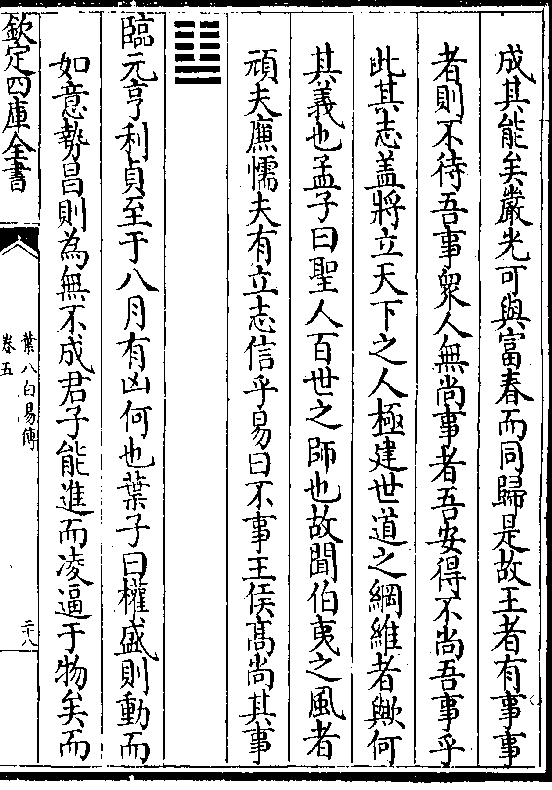 成其能矣嚴光可與富春而同歸是故王者有事事
者則不待吾事衆人無尚事者吾安得不尚吾事乎
此其志盖將立天下之人極建世道之綱維者歟何
其義也孟子曰聖人百世之師也故聞伯夷之風者
頑夫廉懦夫有立志信乎易曰不事王侯髙尚其事
䷒
臨元亨利貞至于八月有凶何也葉子曰權盛則動而
如意勢昌則為無不成君子能進而凌逼于物矣而
欽定四庫全書
葉八白易傳
卷五
二十八